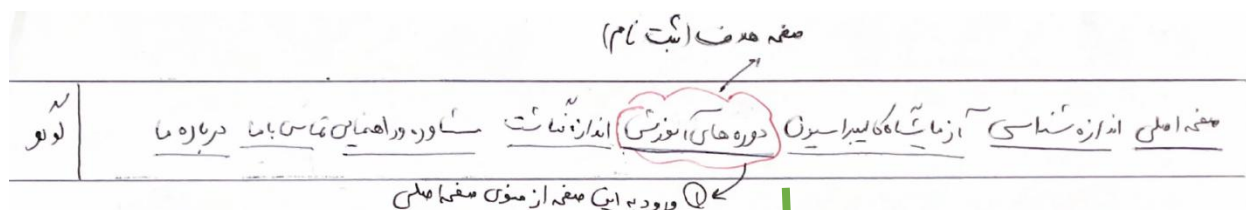 صفحه هدف (ثبت نام)
صفحه اصلی اندازه شناسی آزمایشگاه کالیبراسیون دوره های آموزشی اندازه نگاشت مشاوره و راهنمایی تماس با ما درباره ما لوگو
① ورود به این صفحه از منوی صفحه اصلی